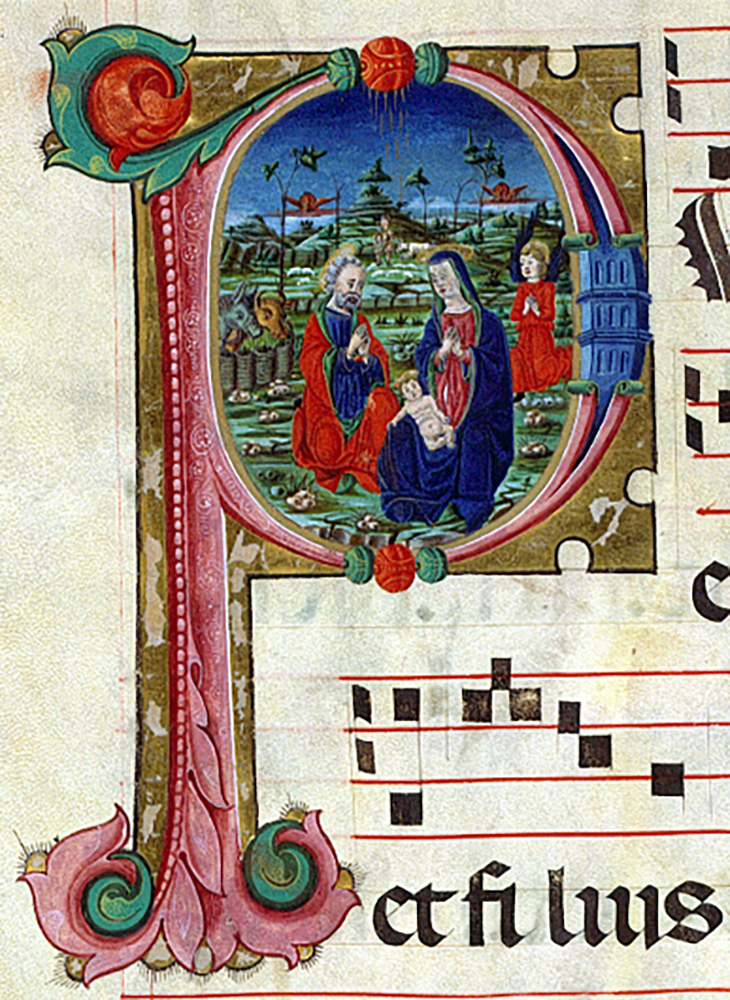 P
e
et fi lius